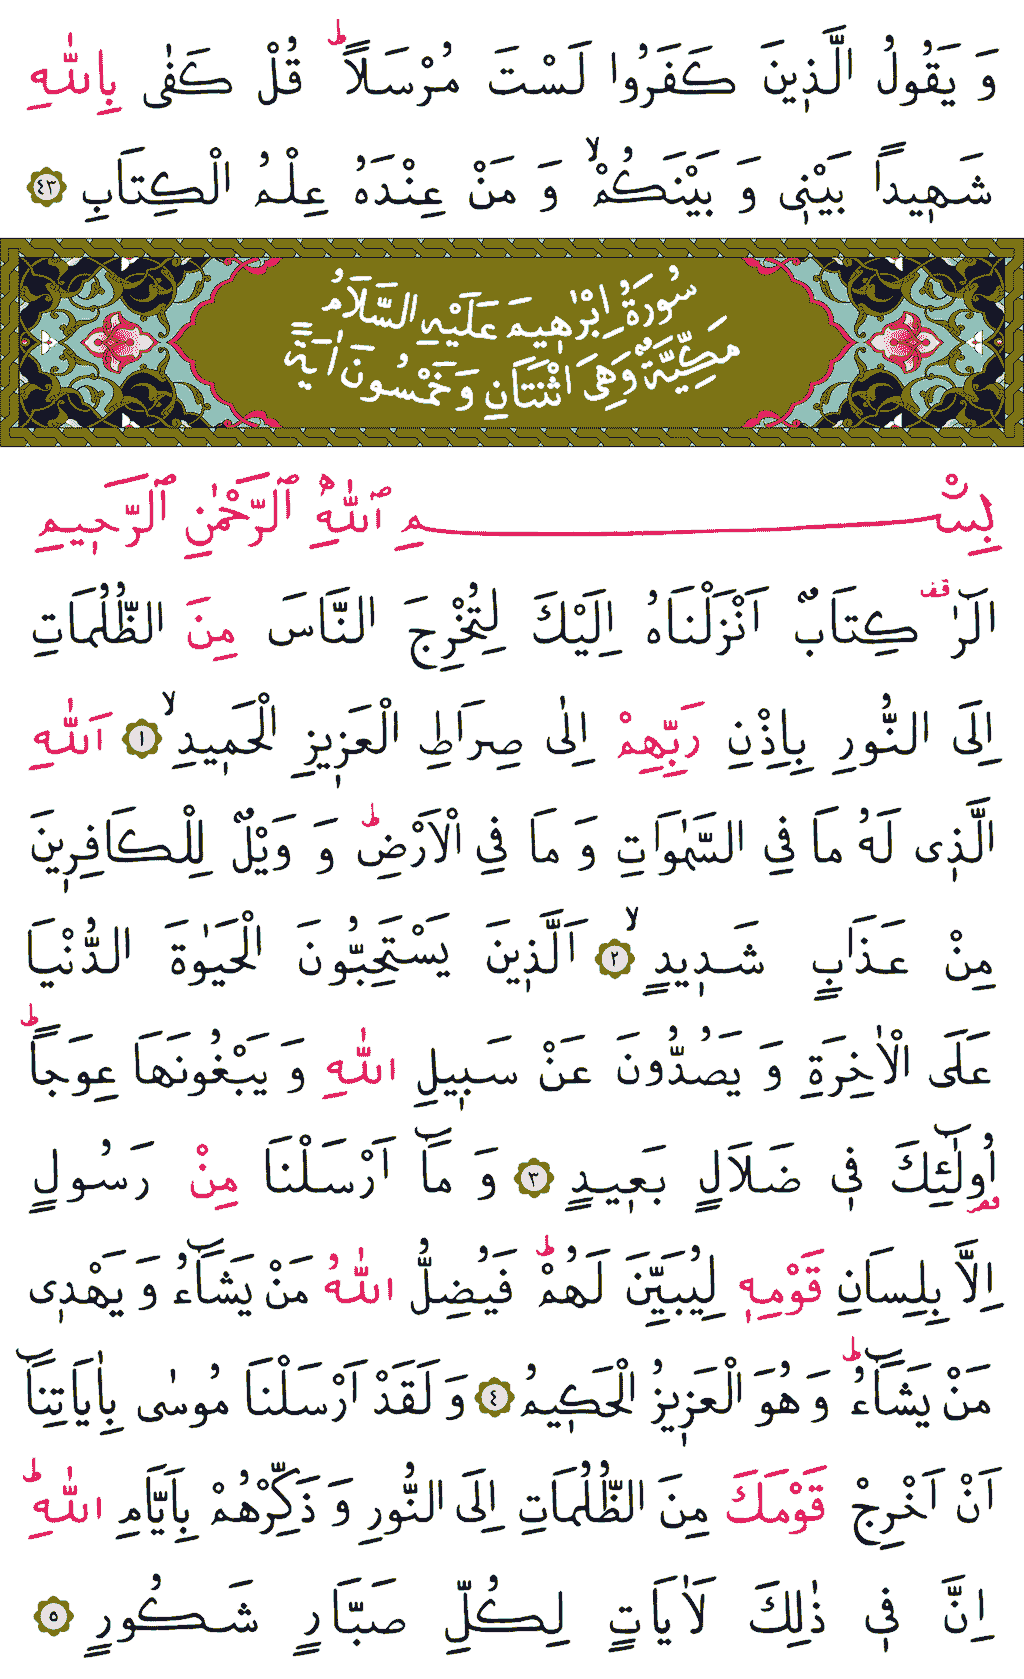 وَ يَقُولُ الَّذٖينَ كَفَرُوا لَسْتَ مُرْسَلاًؕ قُلْ كَفٰى بِاللّٰهِ
شَهٖيداً بَيْنٖى وَ بَيْنَكُمْۙ وَ مَنْ عِنْدَهُ عِلْمُ الْكِتَابِ ﴿٤٣﴾
سُورَةُ اِبْرٰهٖيمَ عَلَيْهِ السَّلَامُ
مَكِّيَّةٌ وَهِىَ اثْنَتَانِ وَ خَمْسُونَ اٰيَةً
بِسْمِ ٱللّٰهِ ٱلرَّحْمٰنِ ٱلرَّحٖيمِ
الٓرٰࣞ كِتَابٌ اَنْزَلْنَاهُ اِلَيْكَ لِتُخْرِجَ النَّاسَ مِنَ الظُّلُمَاتِ
اِلَى النُّورِ بِاِذْنِ رَبِّهِمْ اِلٰى صِرَاطِ الْعَزٖيزِ الْحَمٖيدِۙ ﴿١﴾ اَللّٰهِ
الَّذٖى لَهُ مَا فِي السَّمٰوَاتِ وَ مَا فِي الْاَرْضِؕ وَ وَيْلٌ لِلْكَافِرٖينَ
مِنْ عَذَابٍ شَدٖيدٍۙ ﴿٢﴾ اَلَّذٖينَ يَسْتَحِبُّونَ الْحَيٰوةَ الدُّنْيَا
عَلَى الْاٰخِرَةِ وَ يَصُدُّونَ عَنْ سَبٖيلِ اللّٰهِ وَ يَبْغُونَهَا عِوَجاًؕ
اُو۬لٰٓئِكَ فٖى ضَلَالٍ بَعٖيدٍ ﴿٣﴾ وَ مَٓا اَرْسَلْنَا مِنْ رَسُولٍ
اِلَّا بِلِسَانِ قَوْمِهٖ لِيُبَيِّنَ لَهُمْؕ فَيُضِلُّ اللّٰهُ مَنْ يَشَٓاءُ وَ يَهْدٖى
مَنْ يَشَٓاءُؕ وَ هُوَ الْعَزٖيزُ الْحَكٖيمُ ﴿٤﴾ وَ لَقَدْ اَرْسَلْنَا مُوسٰى بِاٰيَاتِنَٓا
اَنْ اَخْرِجْ قَوْمَكَ مِنَ الظُّلُمَاتِ اِلَى النُّورِ وَ ذَكِّرْهُمْ بِاَيَّامِ اللّٰهِؕ
اِنَّ فٖى ذٰلِكَ لَاٰيَاتٍ لِكُلِّ صَبَّارٍ شَكُورٍ ﴿٥﴾